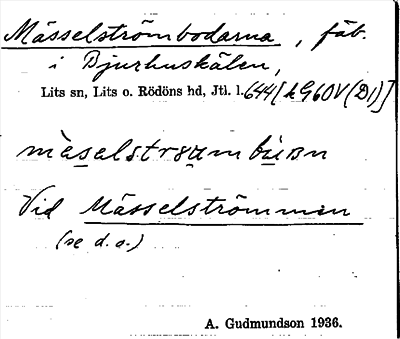 Mässelströmbodarna, fäb.
i Bjurhuskälen,
Lits sn, Lits o. Rödöns hd, Jtl. l. 644 [h G60V (D1)]
Vid Mässelströmmen
(se d. o.)
A. Gudmundson 1936.